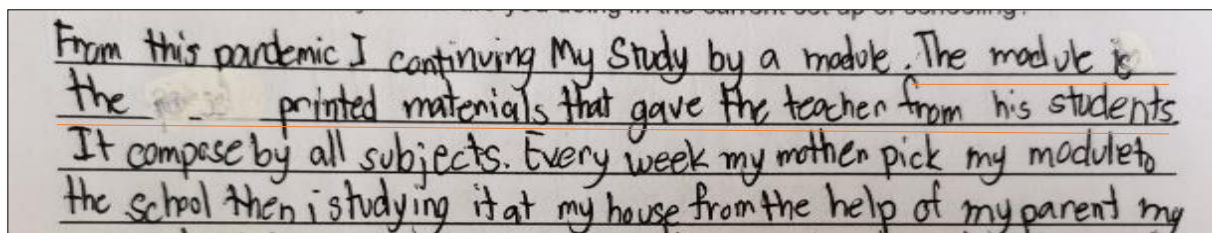 From this pandemic I continuing My Study by a module. The module is
the printed materials that gave the teacher from his students.
It compose by all subjects. Every week my mother pick my module to
the school then i studying it at my house from the help of my parent my